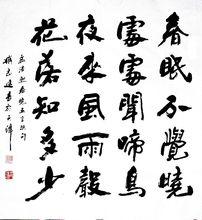 春眠不覺曉
處處聞啼鳥
夜來風雨聲
花落知多少
孟浩然春曉五言絕句